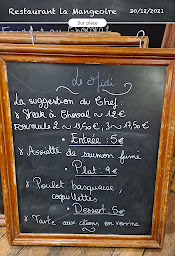 Restaurant la Mangeoire 30/12/2021
Sur place
Le Midi
La suggestion du Chef:
Steak à Cheval ~ 12€
Formule 2 ~ 13,50€, 3 ~ 17,50€
• Entrée : 5€
Assiette de saumon fumé
• Plat : 9€
Poulet basquaise,
coquillettes
• Dessert : 5€
Tarte aux citrons en verrine